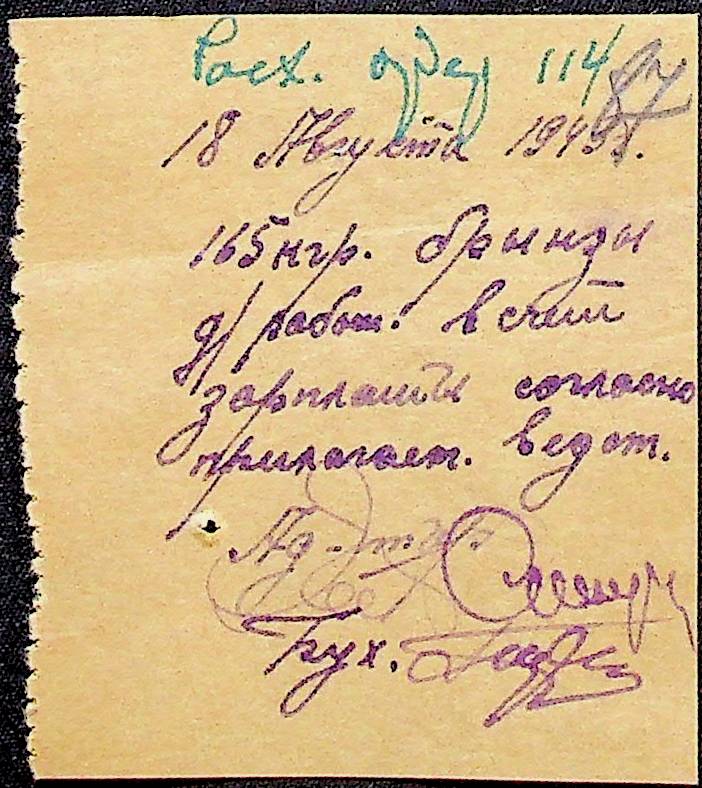 Расх. ордер 114
87
18 Августа 194 г.
165 кгр. брынзы
д/работ. в счет
зарплаты согласно
прилагаем. ведом.
Бух.